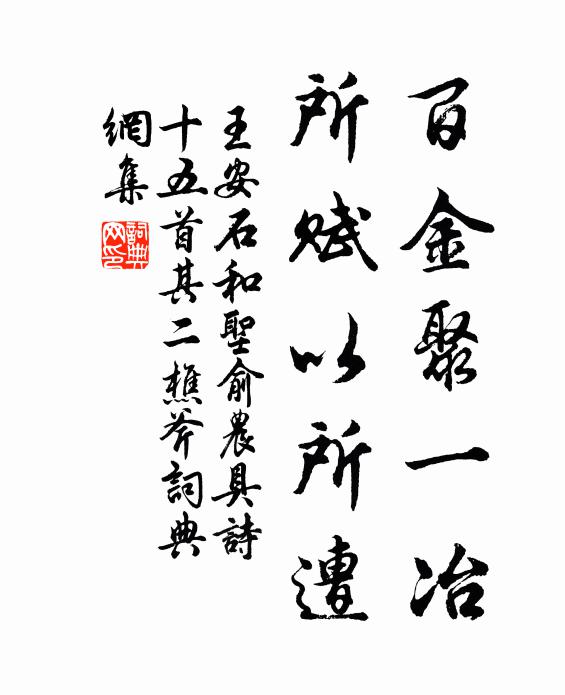 百金聚一冶
所賦以所遭
王安石和聖俞農具詩
十五首其二樵斧詞典
網集
詞典网印